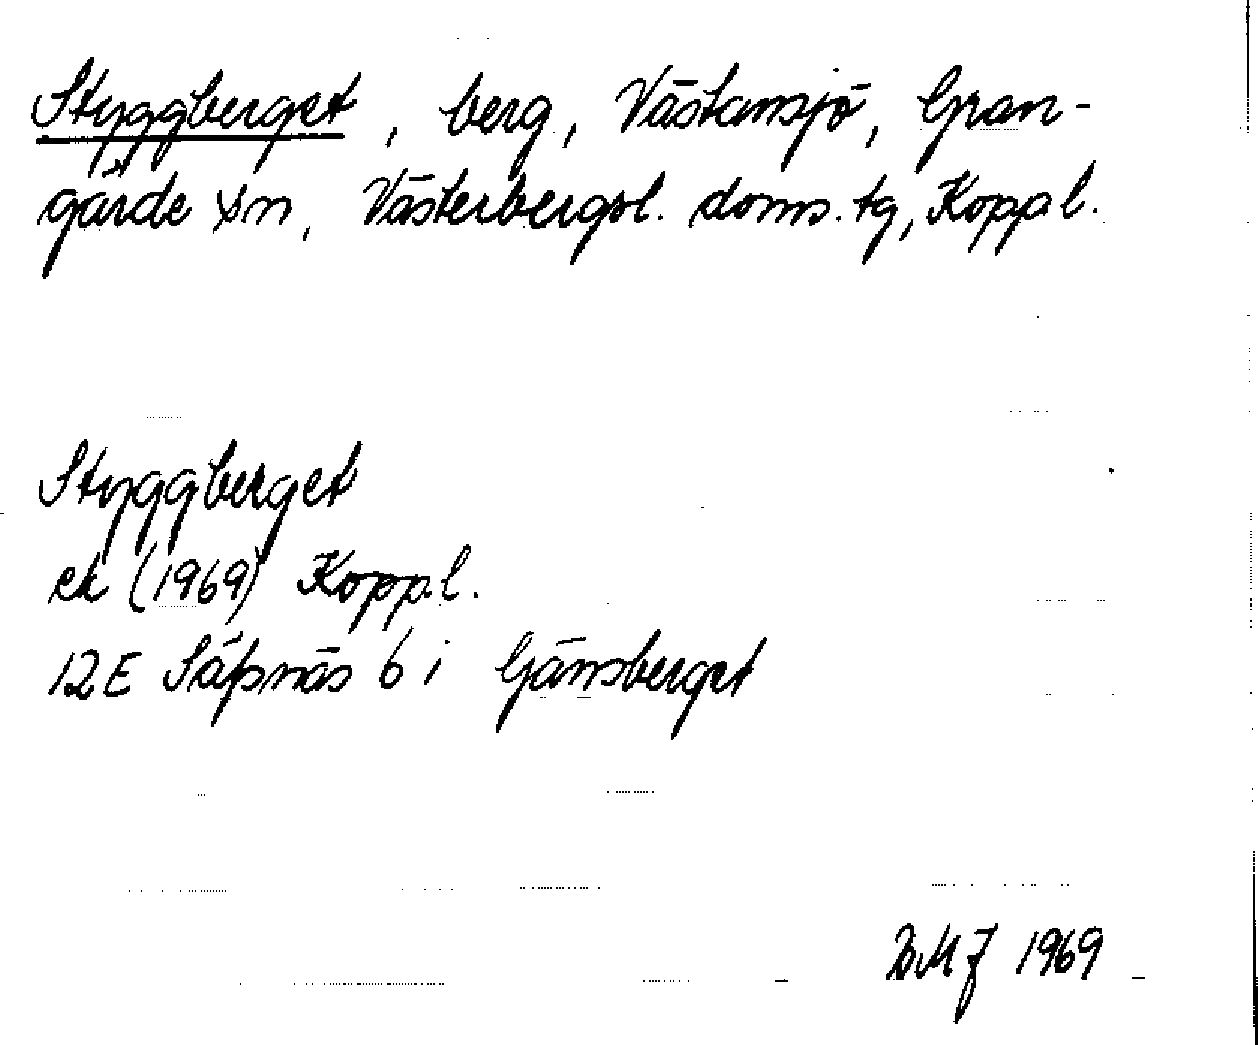 Styggberget, berg, Västansjö, Gran-
gärde sn, Västerbergsl. doms. tg, Koppl.
Styggberget
ek (1969) Koppl.
12E Säfsnäs 6 i Gänsberget
BMJ 1969